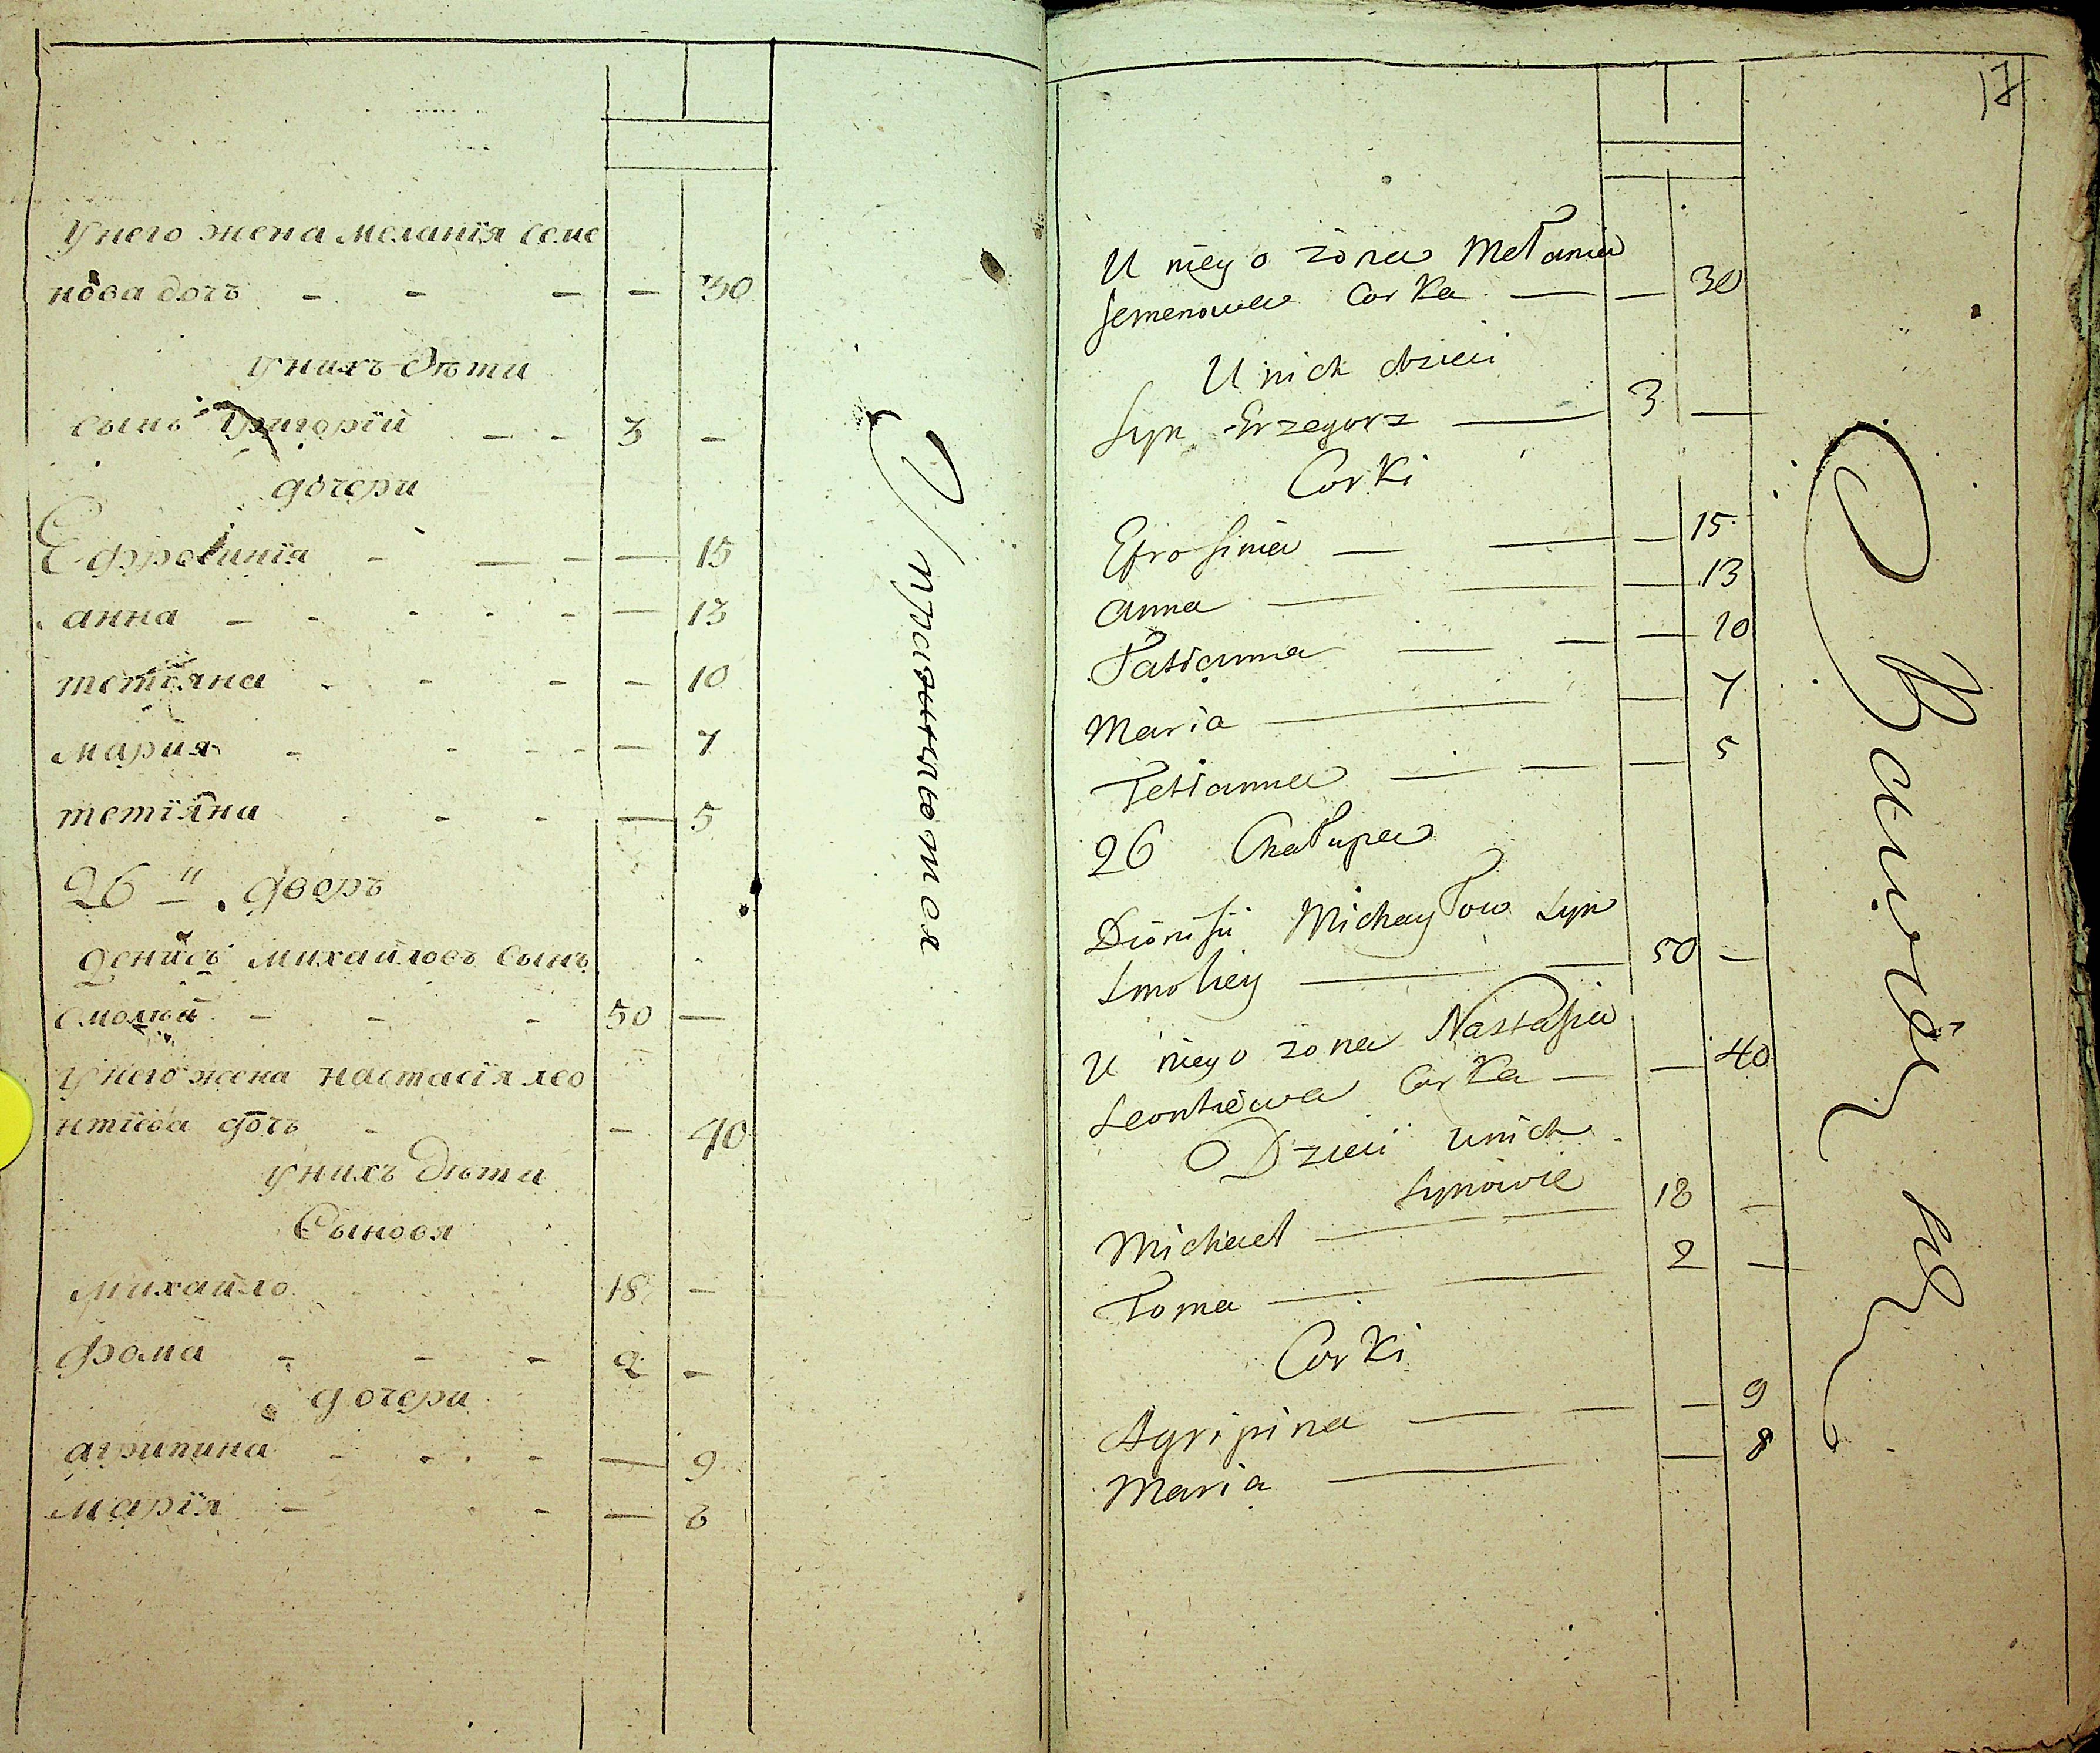 Унего жена мелания семе
нова дочь - - - - 30
Унихъ Дѣти
сынъ Григорїй - - 3 -
дочери
Ефросинїя - - - - 15
анна - - - - - - 13
тетияна - - - - 10
мария - - - - - 7
тетїяна - - - - 5
26 й дворъ
денисъ михайловъ сынъ
смолѣй - - - 50 -
Унего жена настасїя лео
нтїева дочь - - 40
Унихъ Дѣти
Сыновя
михайло 18 -
фома - - - 2 -
дочери
агрипина - - - - - 9
марїя - - - 8
17
U niego żona Mełania
Semenowa Corka — — 30
U nich dzieci
Syn Grzegorz — 3 —
Corki
Efrosinia — — — 15
Anna — — — 13
Tatianna — — — 10
Maria — — 7
Tetianna — — — 5
26 Chałupa
Dionisii Michayłow Syn
Smoliey — — 50 —
U niego żona Nastasia
Leontiewa Corka — — 40
Dzieci unich
Synowie
Michael — — 18 —
Toma — — 2 —
Corki
Agripina — — — 9
Maria — — 8